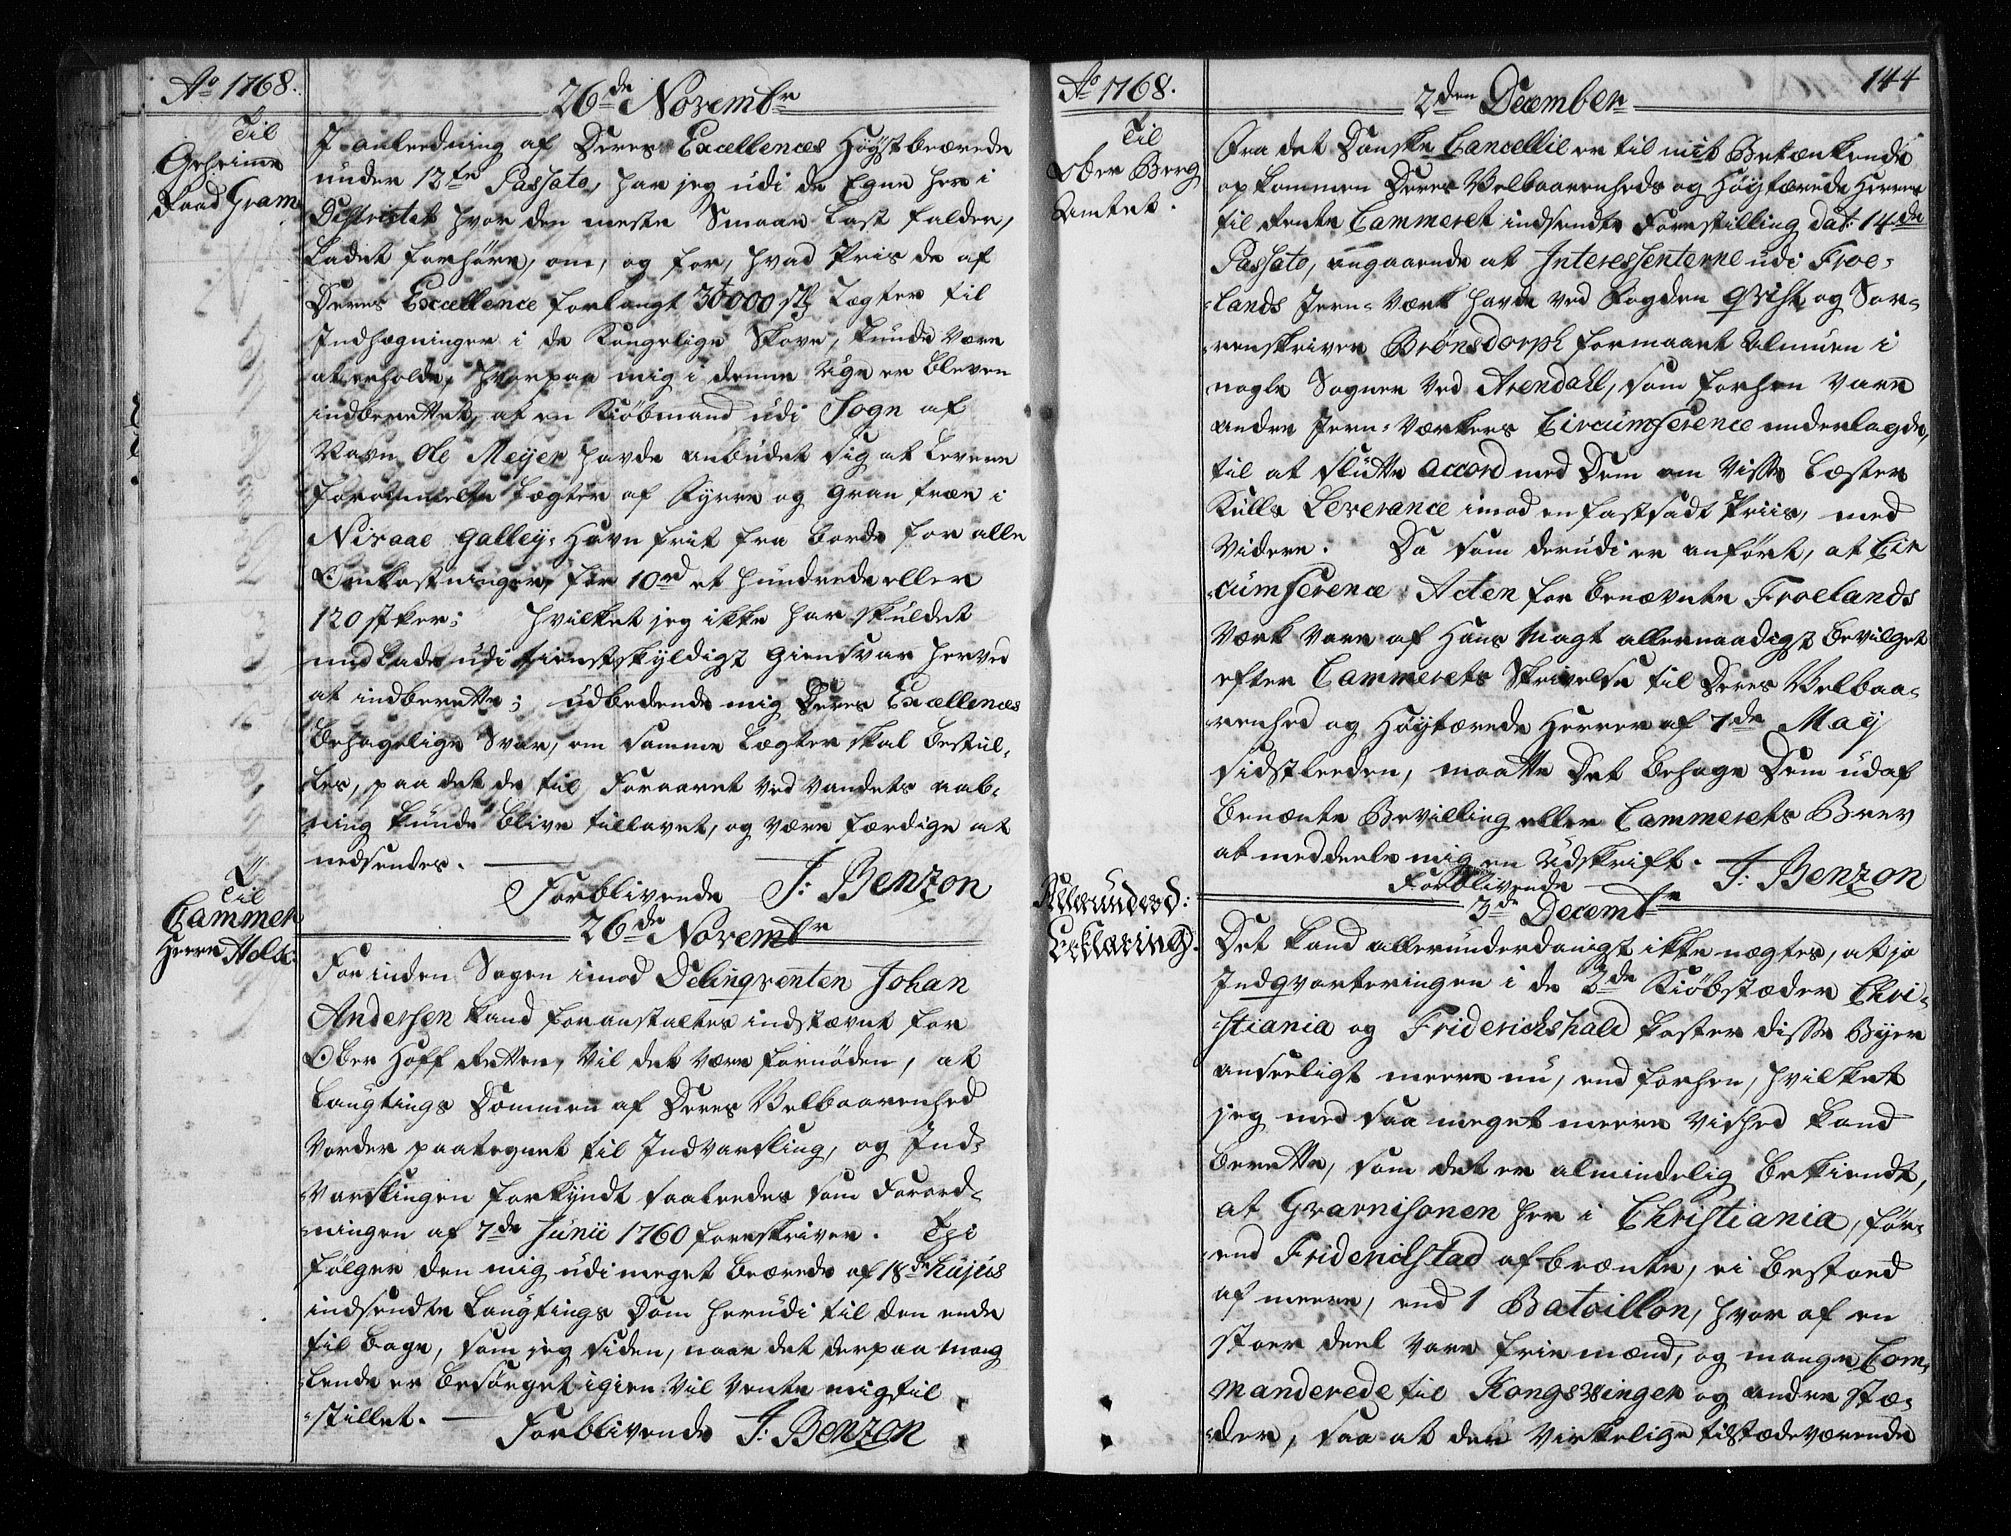 Ao 1768.
26de Novembr
Til
Geheime
Raad Gram
I anledning af Deres Excellences Høystbeærede
under 12te Passato, har jeg udi de Egne her i
Districtet hvor den meste Smaae Last falder,
ladet forhøre, om, og for, hvad Priis de af
Deres Excellence forlangt 30000 st Lægter til
Indhægninger i de Kongelige Skove, kunde være
at erholde, hvorpaa mig i denne Uge er bleven
indberettet, at en Kiøbmand udi Sogn af
Navn Ole Meyer havde anbudet sig at levere
forommelte Lægter af Fyrre og Gran træe i
Nivaae Galley-Havn frit fra borde for alle
Omkostninger, for 10rd et hundrede eller
120 stker; hvilket jeg ikke har skuldet
undlade udi tienstskyldigst Giensvar herved
at indberette; udbedende mig Deres Excellences
behagelige Svar, om samme Lægter skal bestil-
les, paa det de til Foraaret ved Vandets aab-
ning kunde blive tillavet, og være færdige at
nedsendes.
Forblivende J: Benzon
26de Novembr
Til
Cammer
Herre Holck
For inden Sagen imod Delinqventen Johan
Andersen kand foranstaltes indstævnt for
Ober Hoff Retten, vil det være fornøden, at
Laugtings Dommen af Deres Velbaarenhed
vorder paategnet til Indvarsling, og Ind-
varslingen forkyndt saaledes som Forord-
ningen af 7de Junii 1760 foreskriver. Thi
følger den mig udi meget beærede af 18de hujus
indsendte Laugtings Dom herudi til den ende
til bage, som jeg siden, naar det derpaa mang-
lende er besørget igien vil vente mig til
stillet.
Forblivende J: Benzon
Ao 1768.
2den December
144
Til
Ober Berg
Amtet.
Fra det Danske Cancellie er til mit Betænkende
op kommen Deres Velbaarenheds og Høytærede Herres
til Rente Cammeret indsendte Forestilling dat: 14de
Passato, angaaende at Interessenterne udi Froe-
lands Jern-Værk havde ved Fogden Qvist og Sor-
renskriver Brönsdorph formaaet Almuen i
nogle Sogner ved Arendahl, som forhen vare
andre Jern-Værkers Circumference underlagde,
til at slutte Accord med Dem om visse Læster
Kulls Leverance imod en fastsadt Priis, med
videre. Da som derudi er anført, at Cir
cumference Acten for benævnte Froelands
Værk vare af Hans Magt allernaadigst bevilget
efter Cammerets Skrivelse til Deres Velbaa-
renhed og Høytærede Herrer af 7de May
sidstleeden, maatte det behage Dem udaf
benævte Bevilling eller Cammerets Brev
at meddeele mig en Udskrift.
Forblivende J: Benzon
3de Decembr
Allerunderd:
Erklæring.
Det kand allerunderdanigst ikke nægtes, at jo
Indqvarteringen i de 2de Kiøbstæder Chri-
stiania og Friderichshald koster disse Byer
anseeligt meere nu, end forhen, hvilket
jeg med saa meget meere Vished kand
berette, som det er almindelig bekiendt,
at Gvarnisonen her i Christiania, før-
end Friderichstad af brænte, ei bestoed
af meere, end 1 Batoillon, hvor af en
stoer deel vare frie mænd, og mange Com-
manderede til Kongswinger og andre Stæ-
der, saa at den virkelige tilstædeværende